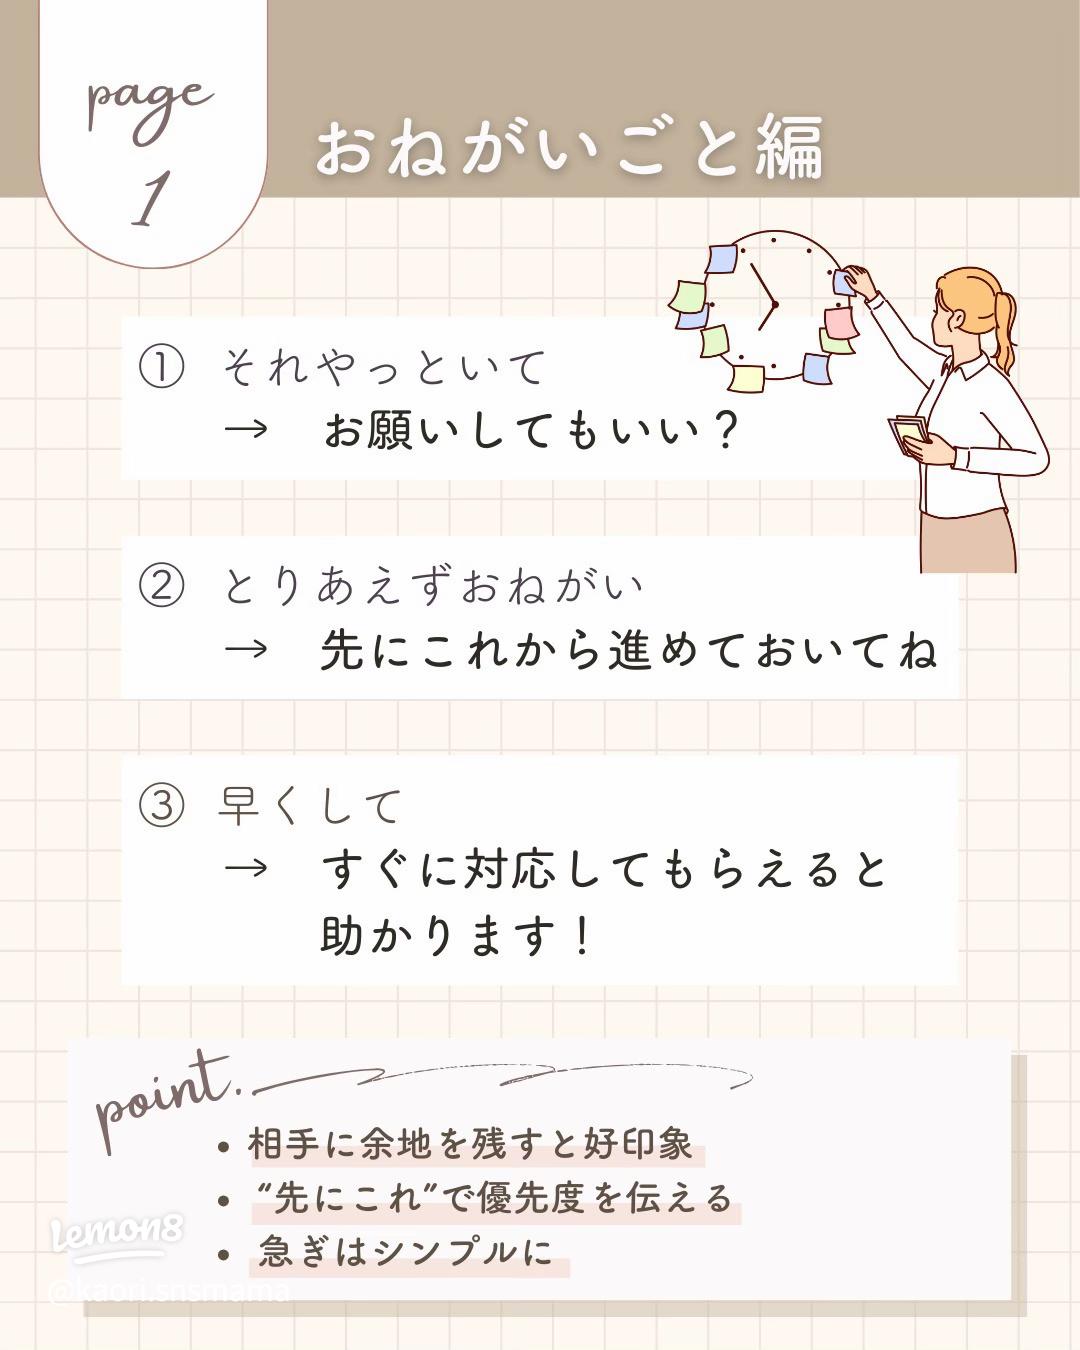 page
1
おねがいごと編
① それやっといて
→ お願いしてもいい？
② とりあえずおねがい
→ 先にこれから進めておいてね
③ 早くして
→ すぐに対応してもらえると
助かります！
point.
• 相手に余地を残すと好印象
• “先にこれ”で優先度を伝える
• 急ぎはシンプルに
Lemon8
@kaori.snsmama